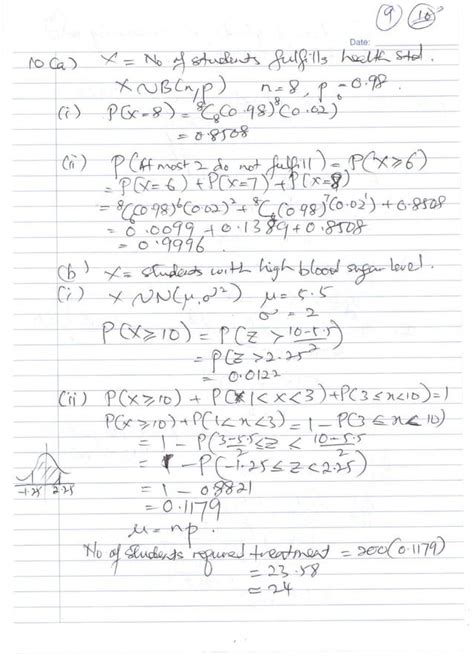 9 10
Date:
10(a) X = No of students fulfills health std.
X ~ B(n,p) n = 8, p = 0.98.
(i) P(X=8) = ⁸C₈(0.98)⁸(0.02)⁰
= 0.8508
(ii) P(At most 2 do not fulfill) = P(X ≥ 6)
= P(X=6) + P(X=7) + P(X=8)
= ⁸C₆(0.98)⁶(0.02)² + ⁸C₇(0.98)⁷(0.02)¹ + 0.8508
= 0.0099 + 0.1389 + 0.8508
= 0.9996
(b) X = students with high blood sugar level.
(i) X ~ N(μ,σ²) μ = 5.5
σ = 2
P(X ≥ 10) = P(Z > (10-5.5)/2)
= P(Z > 2.25)
= 0.0122
(ii) P(X ≥ 10) + P(1 < X < 3) + P(3 ≤ X < 10) = 1
P(X ≥ 10) + P(1 < X < 3) = 1 - P(3 ≤ X < 10)
= 1 - P((3-5.5)/2 ≤ Z < (10-5.5)/2)
= 1 - P(-1.25 ≤ Z < 2.25)
-1.25 2.25
= 1 - 0.8821
= 0.1179
μ = np.
No of students required treatment = 200(0.1179)
= 23.58
= 24